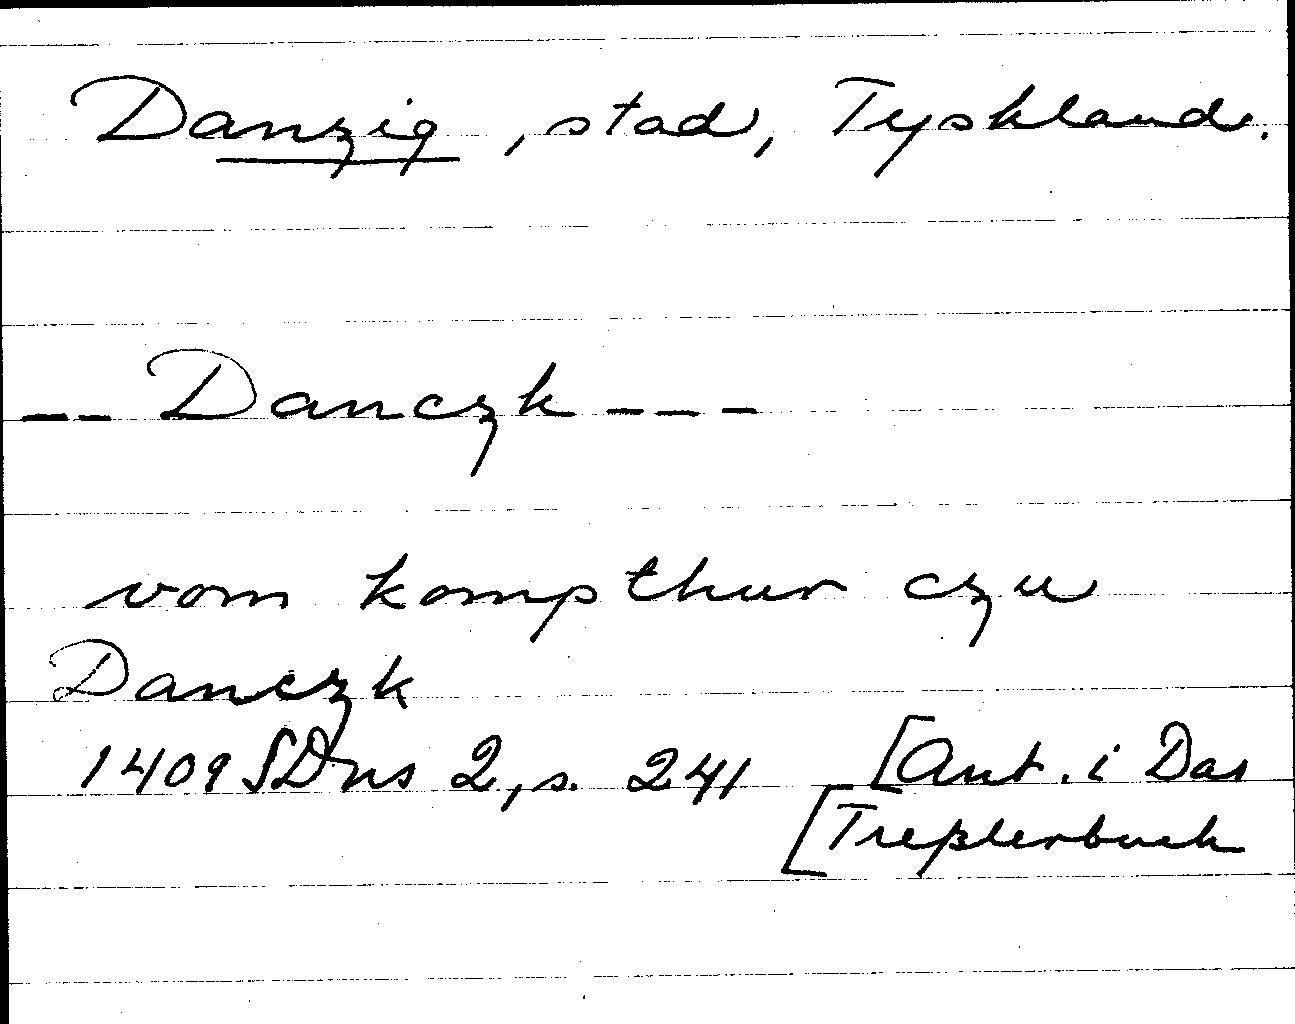 Danzig, stad, Tyskland.
-- Danczk ---
vom kompthur czu
Danczk
1409 SDns 2, s. 241 [Ant. i Das
[Treßlerbuch